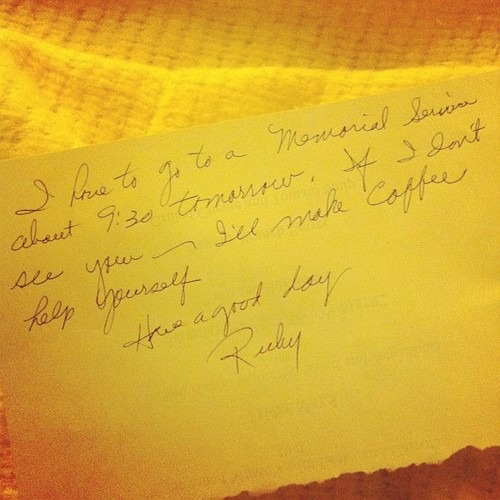 I have to go to a Memorial Service
about 9:30 tomorrow. If I don't
see you — I'll make Coffee
help yourself
Have a good day
Ruby